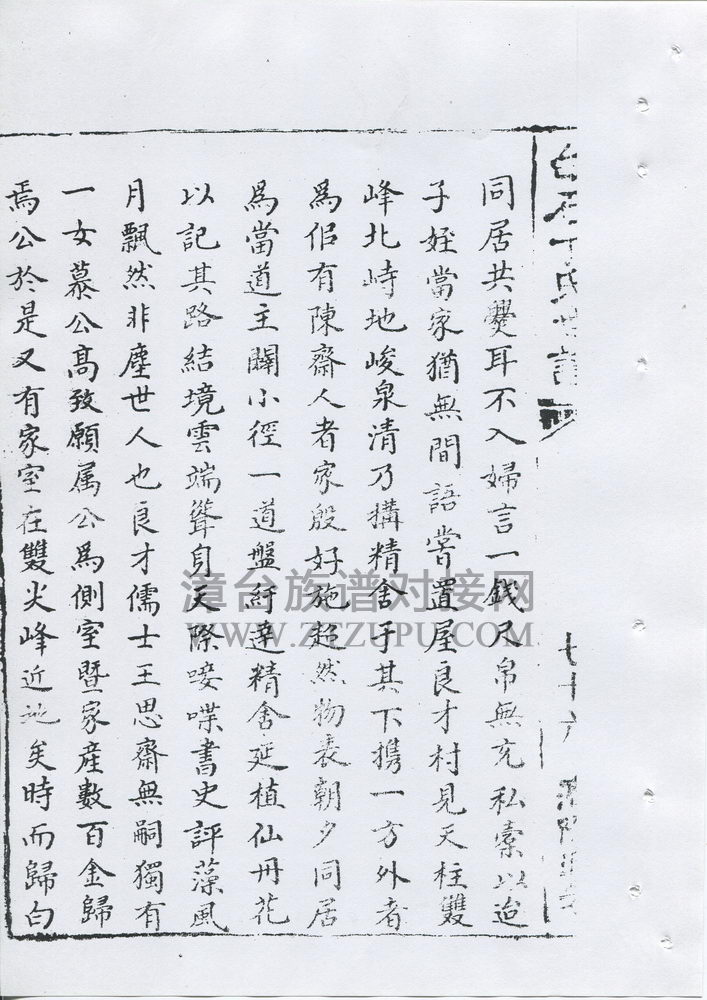 同居共爨耳不入婦言一錢尺帛無充私橐以迨
子姪當家猶無間語嘗置屋良才村見天柱雙
峰北峙地峻泉清乃搆精舍于其下携一方外者
為侶有陳齋人者家殷好施超然物表朝夕同居
為當道主闢小徑一道盤紆達精舍延植仙丹花
以記其路結境雲端聳身天際唼喋書史評藻風
月飄然非塵世人也良才儒士王思齋無嗣獨有
一女慕公高致願属公為側室暨家產數百金歸
焉公於是又有家室在雙尖峰近地矣時而歸白
漳台族谱对接网
WWW.ZTZUPU.COM